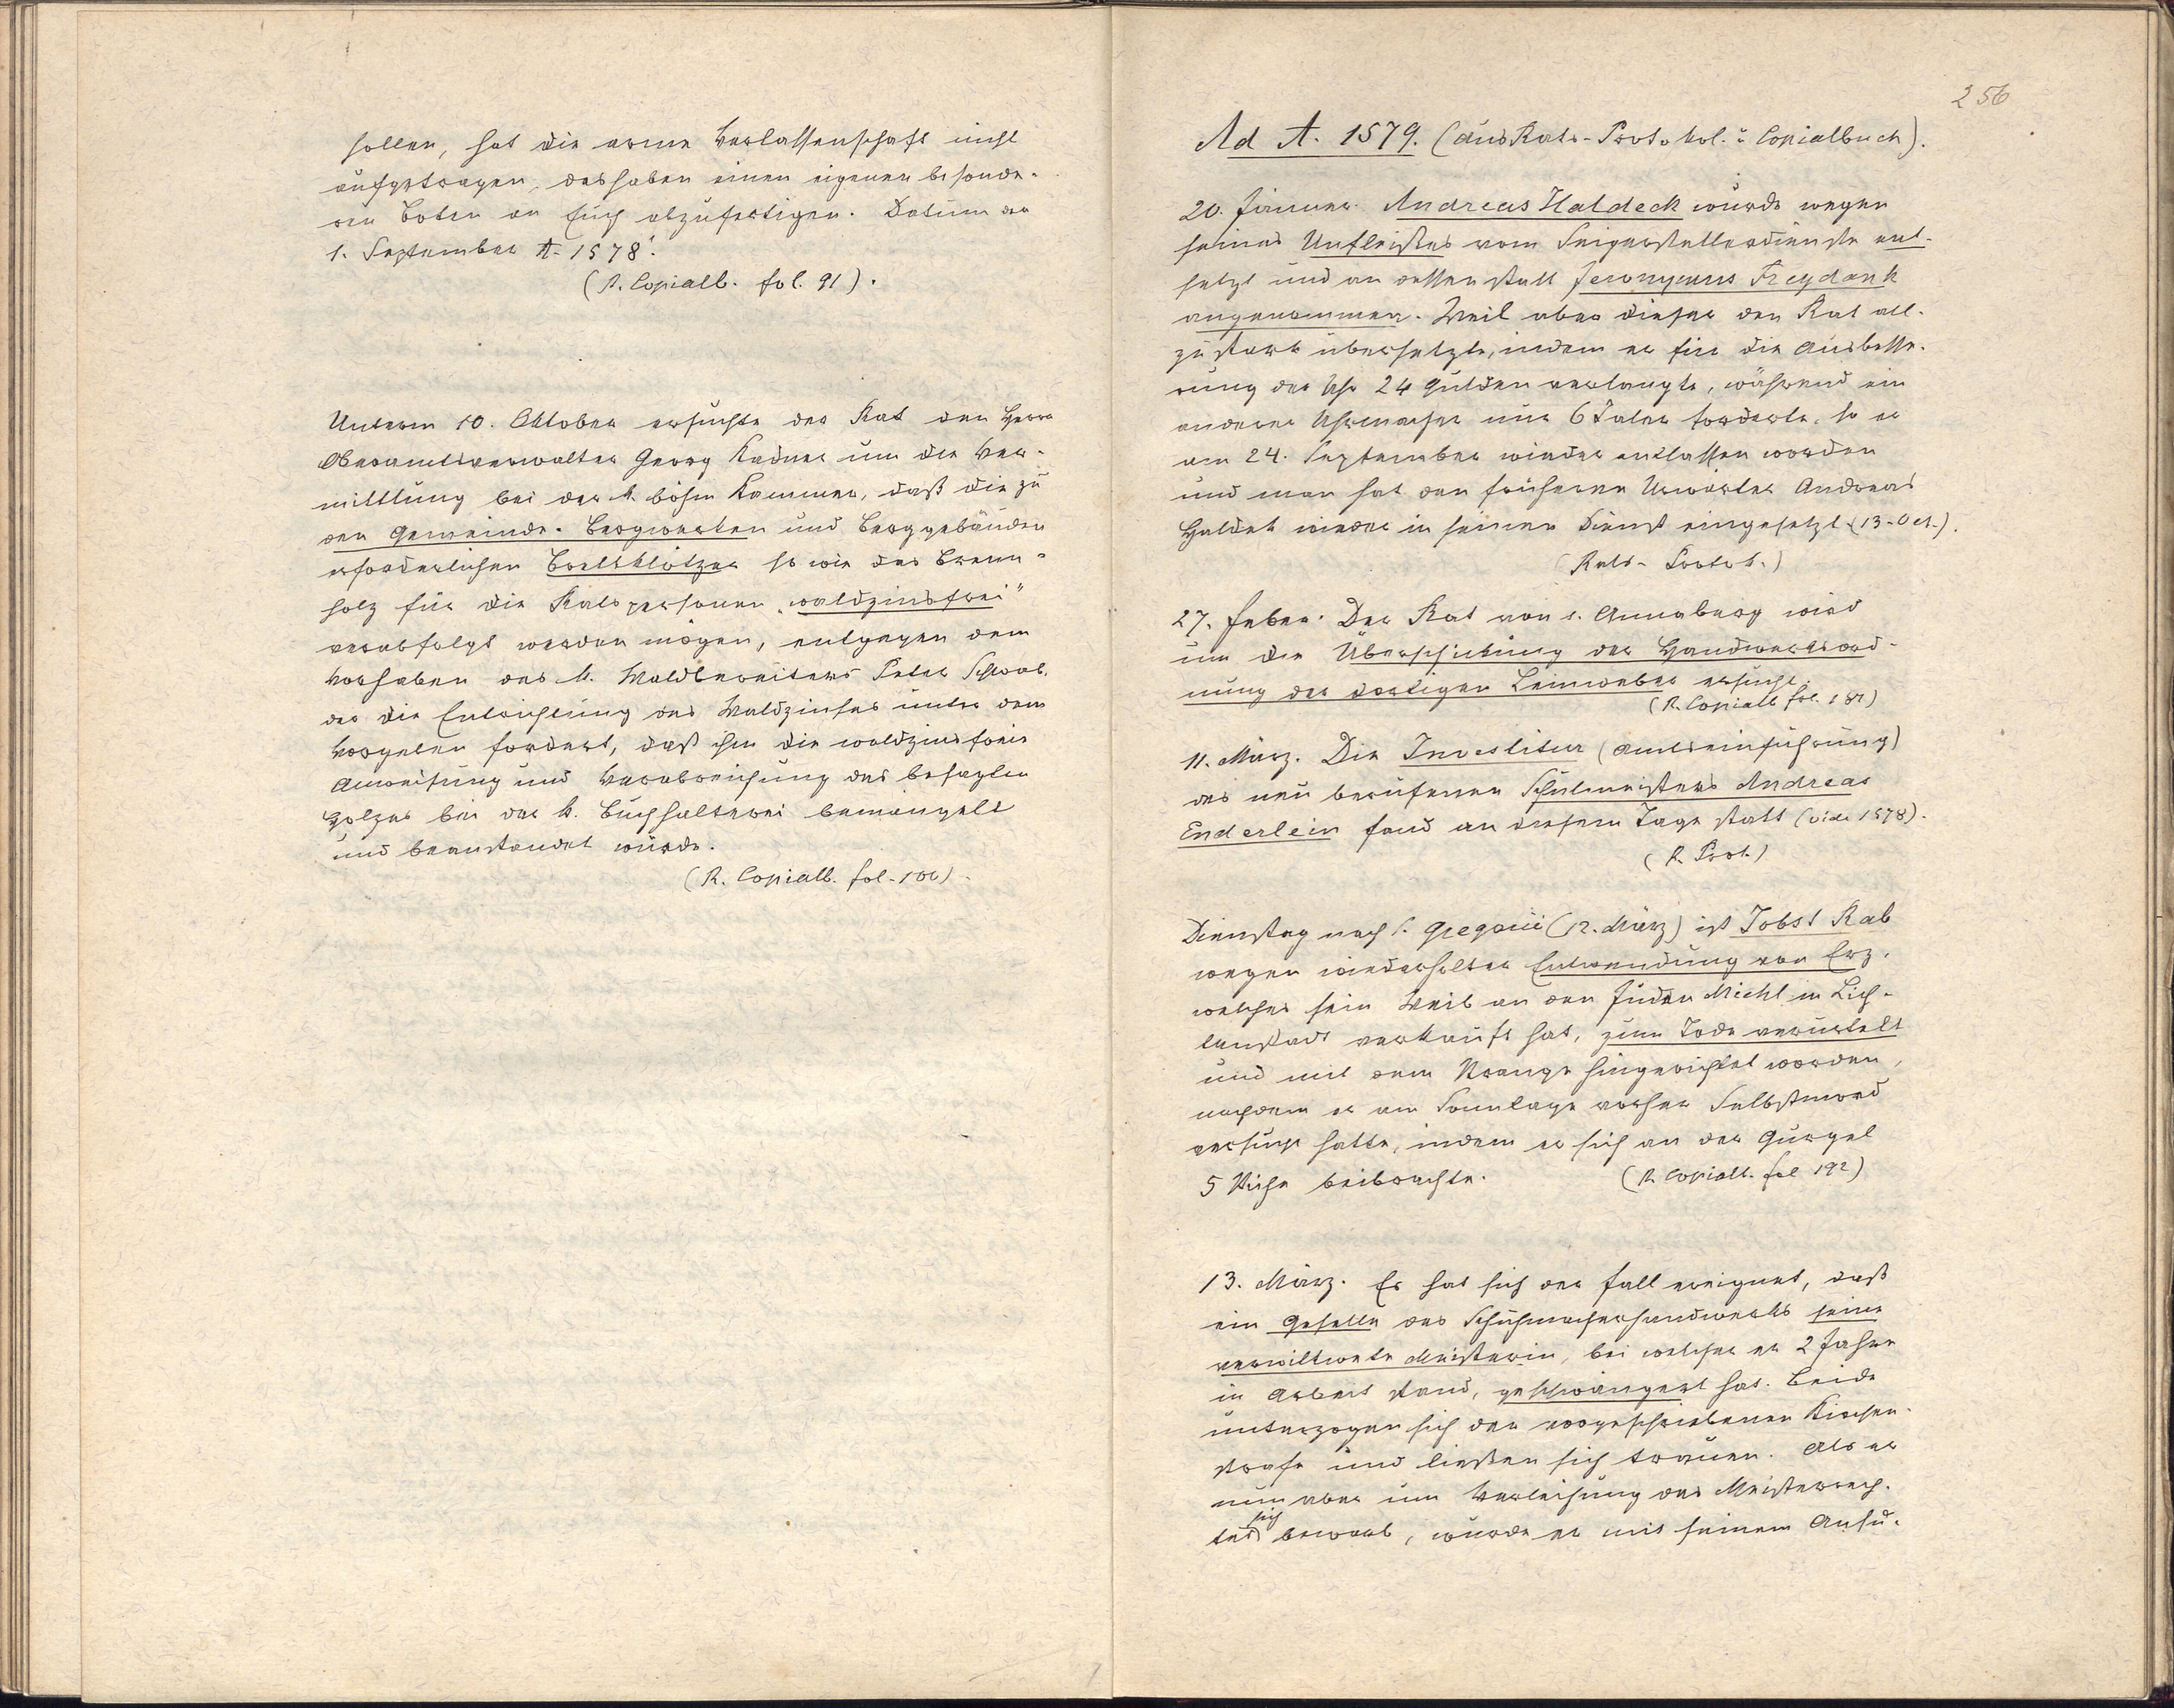 sollen, hat die arme Verlassenschaft nicht
aufgetragen, deshaben einen eigenen besonde-
ren Boten an Euch abzufertigen. Datum den
1. September A. 1578.
(R. Copialb. fol. 91).
Unterm 10. Oktober ersuchte der Rat den Herrn
Oberamtsverwalter Georg Kadner um die Ver-
mittlung bei der k. böhm Kammer, daß die zu
den Gemeinde-Bergwerken und Berggebäuden
erforderlichen Brettklötzer so wie das Brenn-
holz für die Ratspersonen „waldzinsfrei"
verabfolgt werden mögen, entgegen dem
Vorhaben des k. Waldbereiters Peter Schwab,
der die Entrichtung des Waldzinses unter dem
Vorgeben fordert, daß ihm die waldzinsfreie
Anweisung und Verabreichung des besagten
Holzes bei der k. Buchhalterei bemängelt
und beanstandet würde.
(R. Copialb. fol. 100).
256
Ad A. 1579. (aus Rats-Protokol. u Copialbuch).
20. Jänner. Andreas Haldeck wurde wegen
seines Unfleißes vom Seigerstellerdienste ent-
setzt und an dessen statt Jeronymus Freydank
angenommen. Weil aber dieser den Rat all-
zu stark übersetzte, indem er für die Ausbesse-
rung der Uhr 24 Gulden verlangte, während ein
anderer Uhrmacher nur 6 Taler forderte, so er
am 24. September wieder entlassen worden
und man hat den früheren Urwärter Andreas
Haldek wieder in seinen Dienst eingesetzt (13. Oct.).
(Rats-Protok.)
27. Feber. Der Rat von s. Annaberg wird
um die Überschickung der Handwerksord-
nung der dortigen Leinweber ersucht.
(R. Copialb fol. 181)
11. März. Die Investitur (Amtseinführung)
des neu berufenen Schulmeisters Andreas
Enderlein fand an diesem Tage statt (vide 1578).
(R. Prot.)
Dienstag nach s. Gregorii (12. März) ist Jobst Rab
wegen wiederholter Entwendung von Erz,
welches sein Weib an den Juden Michl in Lich-
tenstadt verkauft hat, zum Tode verurtelt
und mit dem Strange hingerichtet worden,
nachdem er am Sonntage vorher Selbstmord
versucht hatte, indem er sich an der Gurgel
5 Stiche beibrachte. (R. Copialb. fol 192)
13. März. Es hat sich der Fall ereignet, daß
ein Geselle des Schuhmacherhandwerks seine
verwittwete Meisterin, bei welcher er 2 Jahre
in Arbeit stand, geschwängert hat. Beide
unterzogen sich der vorgeschriebenen Kirchen-
strafe und ließen sich trauen. Als er
nun aber um Verleihung des Meisterrech-
tes sich bewarb, wurde er mit seinem Ansu-